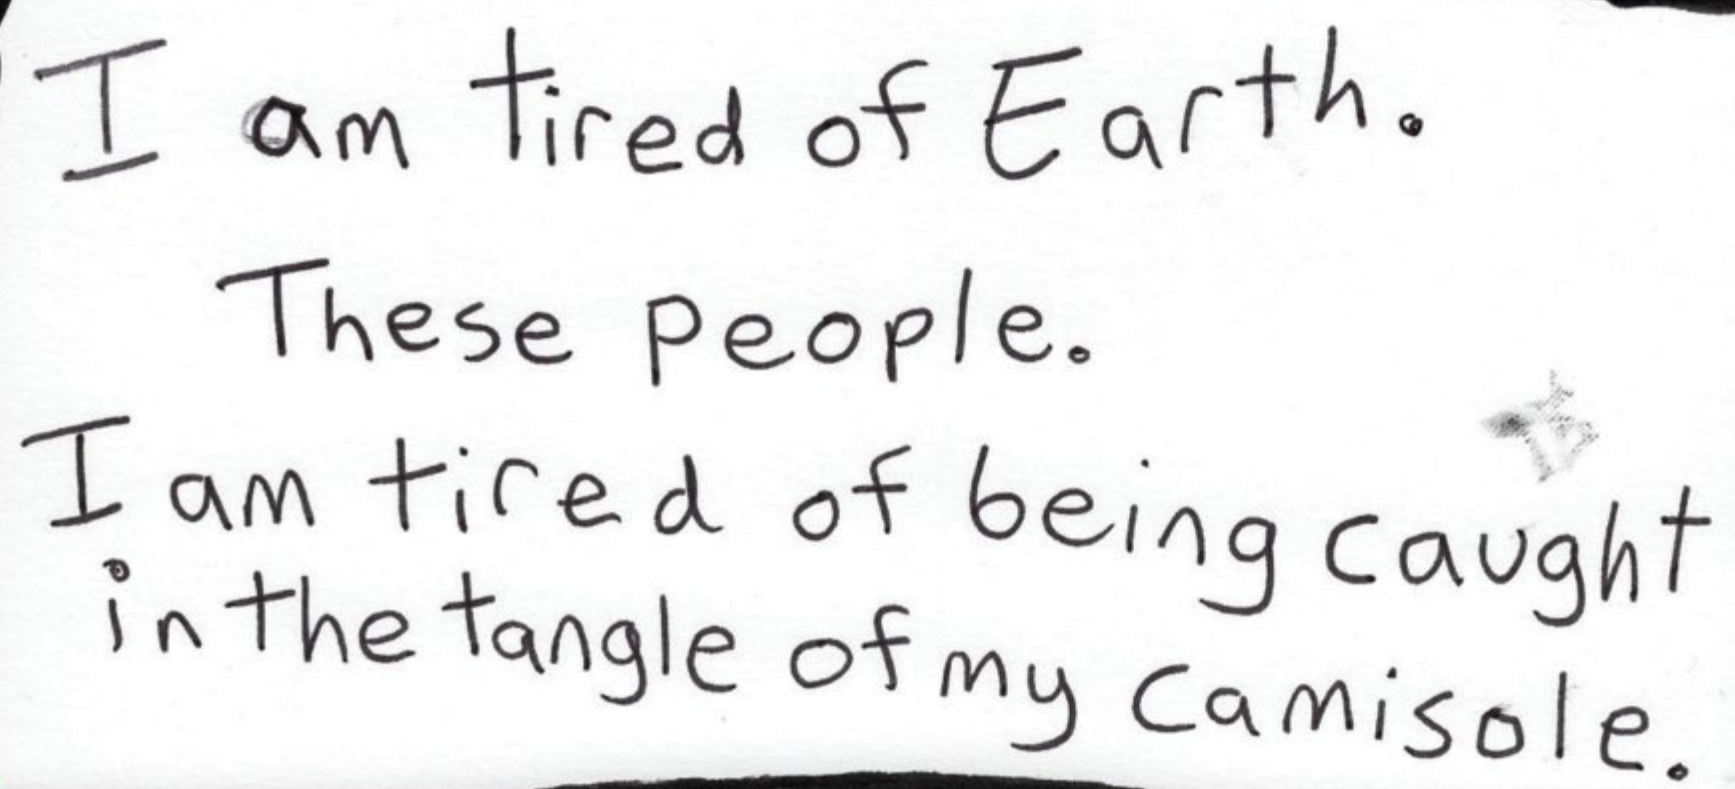 I am tired of Earth.
These people.
I am tired of being caught
in the tangle of my camisole.